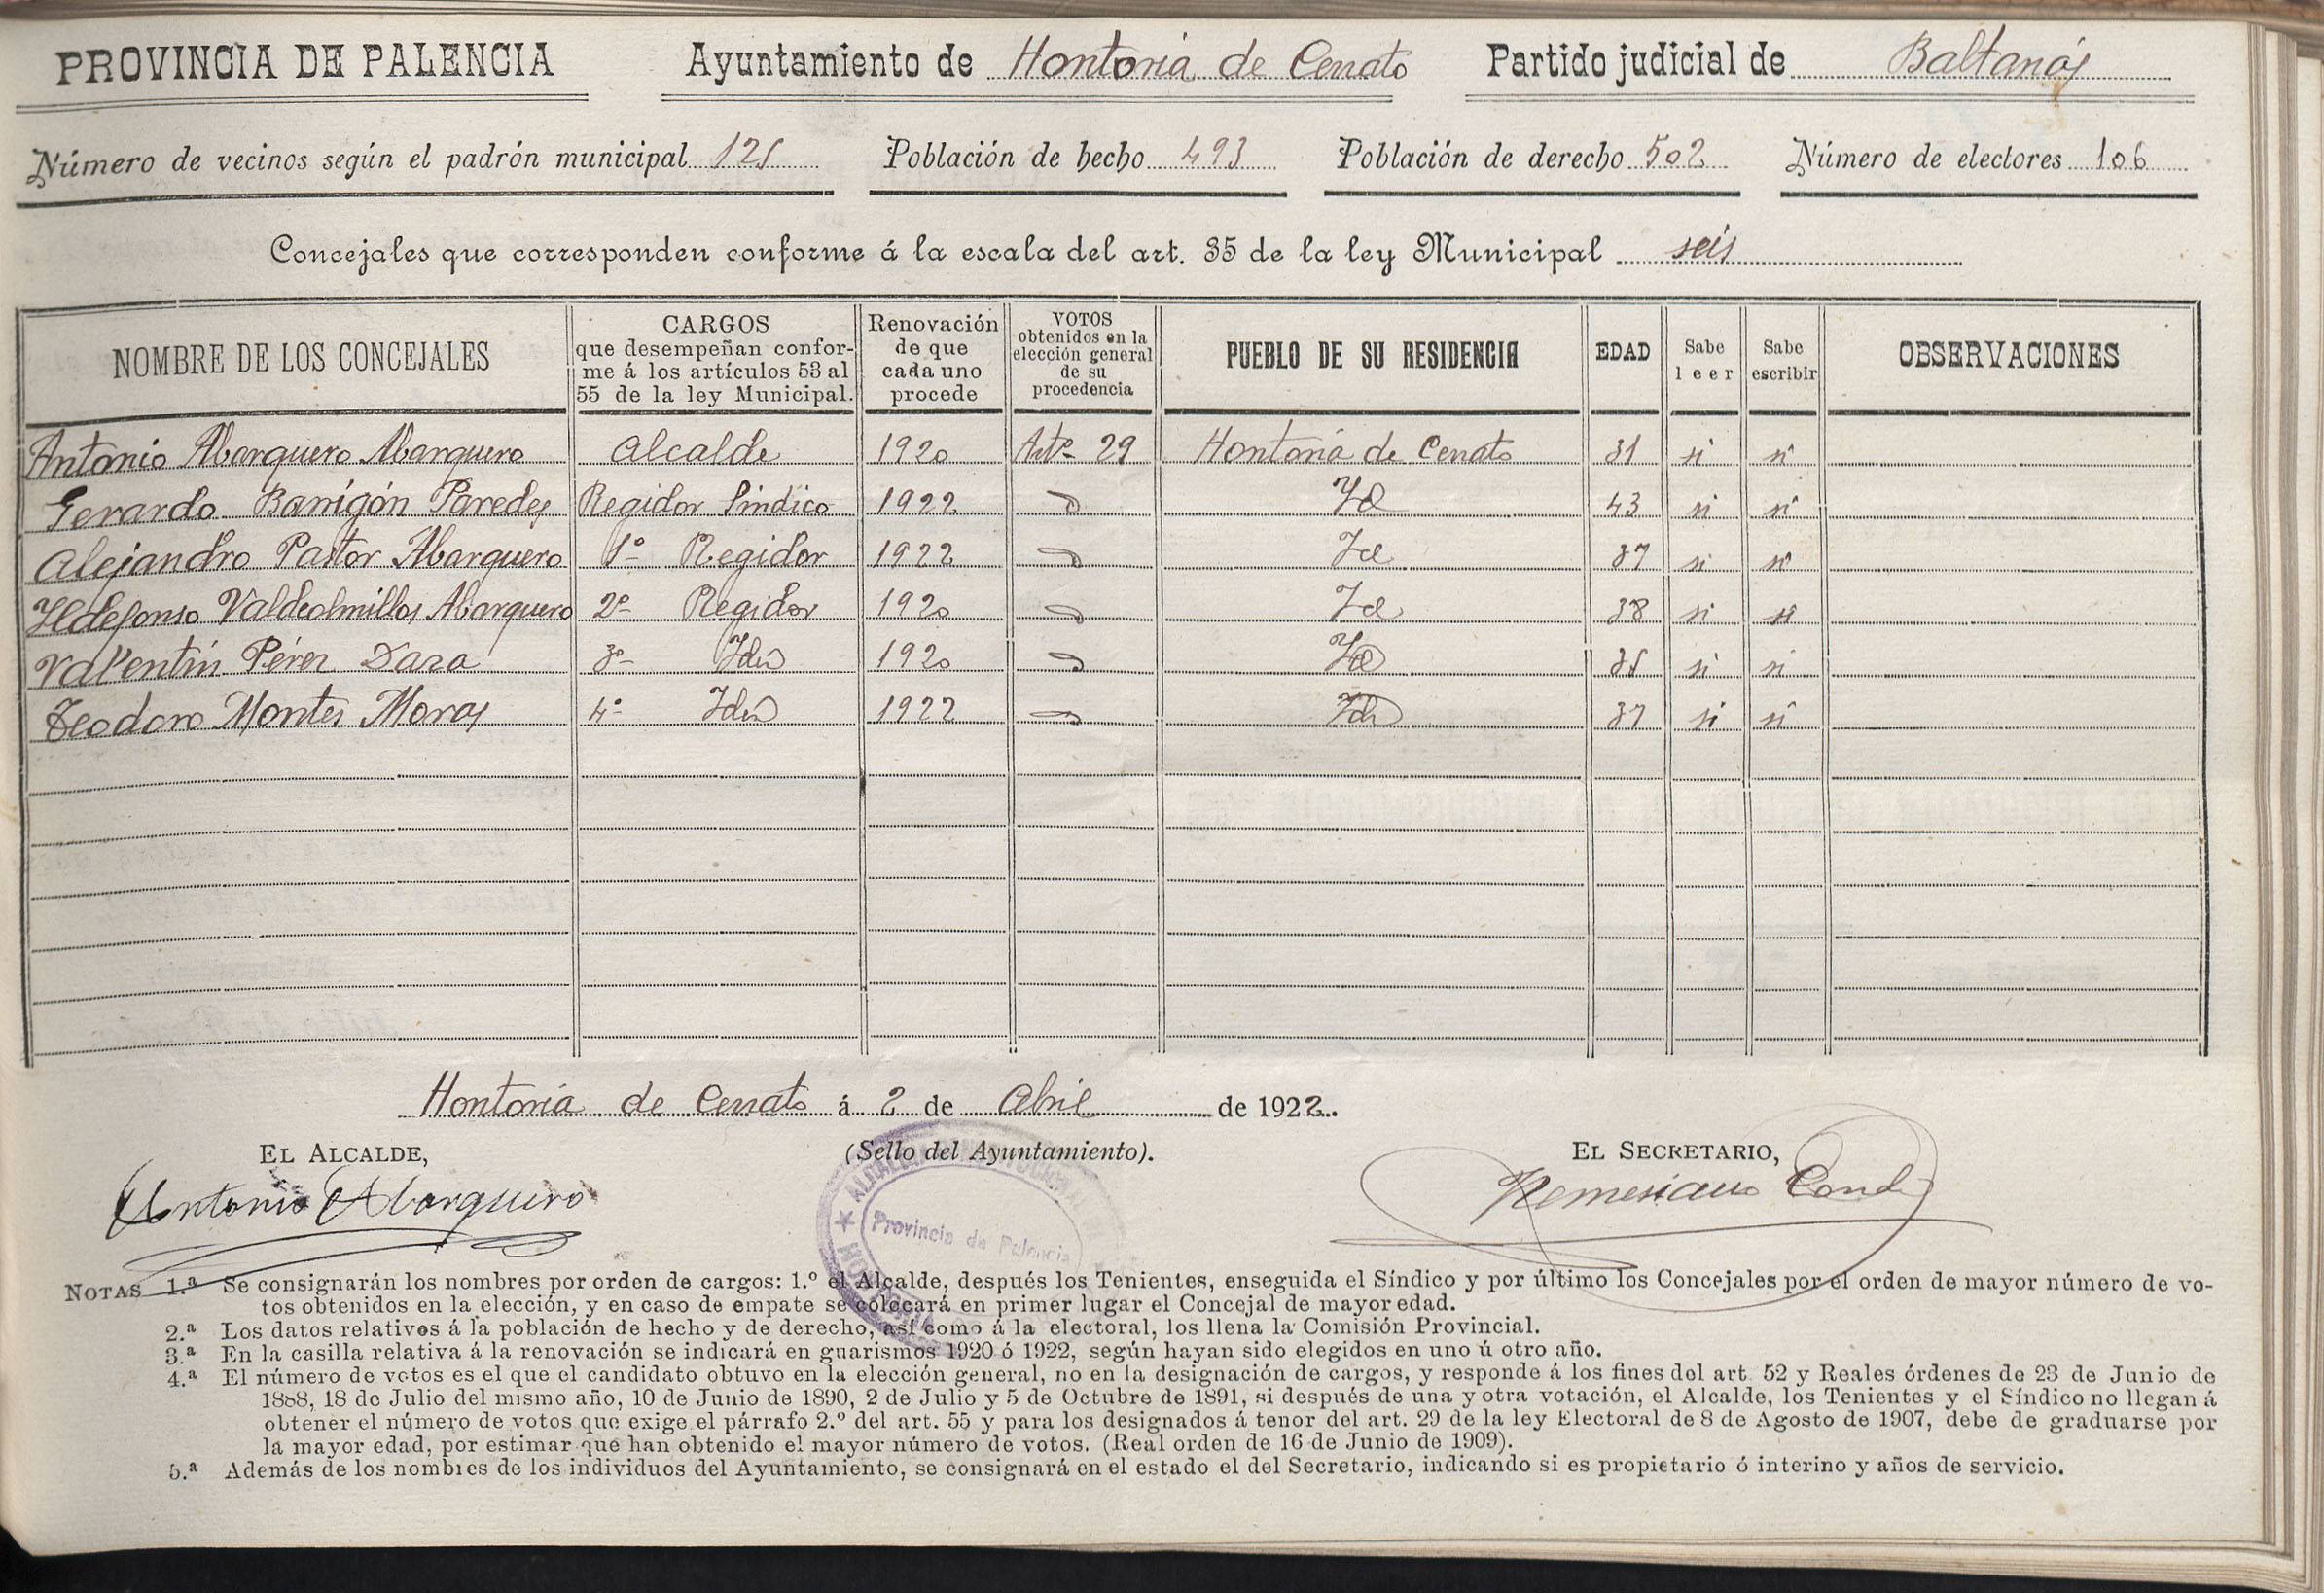 PROVINCIA DE PALENCIA Ayuntamiento de Hontoria de Cerrato Partido judicial de Baltanás
Número de vecinos según el padrón municipal 125 Población de hecho 493 Población de derecho 502 Número de electores 106
Concejales que corresponden conforme á la escala del art. 35 de la ley Municipal seis
NOMBRE DE LOS CONCEJALES
CARGOS
que desempeñan confor-
me á los artículos 53 al
55 de la ley Municipal.
Renovación
de que
cada uno
procede
VOTOS
obtenidos en la
elección general
de su
procedencia
PUEBLO DE SU RESIDENCIA
EDAD
Sabe
leer
Sabe
escribir
OBSERVACIONES
Antonio Abarquero Abarquero Alcalde 1920 Artº 29 Hontoria de Cerrato 31 si si
Gerardo Barrigón Paredes Regidor Sindico 1922 Id 43 si si
Alejandro Pastor Abarquero 1º Regidor 1922 Id 37 si si
Ildefonso Valdeolmillos Abarquero 2º Regidor 1920 Id 38 si si
Valentín Pérez Daza 3º Idm 1920 Id 35 si si
Teodoro Montes Moras 4º Idm 1922 Id 37 si si
Hontoria de Cerrato á 2 de Abril de 1922.
EL ALCALDE, (Sello del Ayuntamiento). EL SECRETARIO,
Antonio Abarquero Nemesiano Conde
Provincia de Palencia
NOTAS 1.ª Se consignarán los nombres por orden de cargos: 1.º el Alcalde, después los Tenientes, enseguida el Síndico y por último los Concejales por el orden de mayor número de vo-
tos obtenidos en la elección, y en caso de empate se colocará en primer lugar el Concejal de mayor edad.
2.ª Los datos relativos á la población de hecho y de derecho, así como á la electoral, los llena la Comisión Provincial.
3.ª En la casilla relativa á la renovación se indicará en guarismos 1920 ó 1922, según hayan sido elegidos en uno ú otro año.
4.ª El número de votos es el que el candidato obtuvo en la elección general, no en la designación de cargos, y responde á los fines del art. 52 y Reales órdenes de 23 de Junio de
1888, 18 de Julio del mismo año, 10 de Junio de 1890, 2 de Julio y 5 de Octubre de 1891, si después de una y otra votación, el Alcalde, los Tenientes y el Síndico no llegan á
obtener el número de votos que exige el párrafo 2.º del art. 55 y para los designados á tenor del art. 29 de la ley Electoral de 8 de Agosto de 1907, debe de graduarse por
la mayor edad, por estimar que han obtenido el mayor número de votos. (Real orden de 16 de Junio de 1909).
5.ª Además de los nombres de los individuos del Ayuntamiento, se consignará en el estado el del Secretario, indicando si es propietario ó interino y años de servicio.